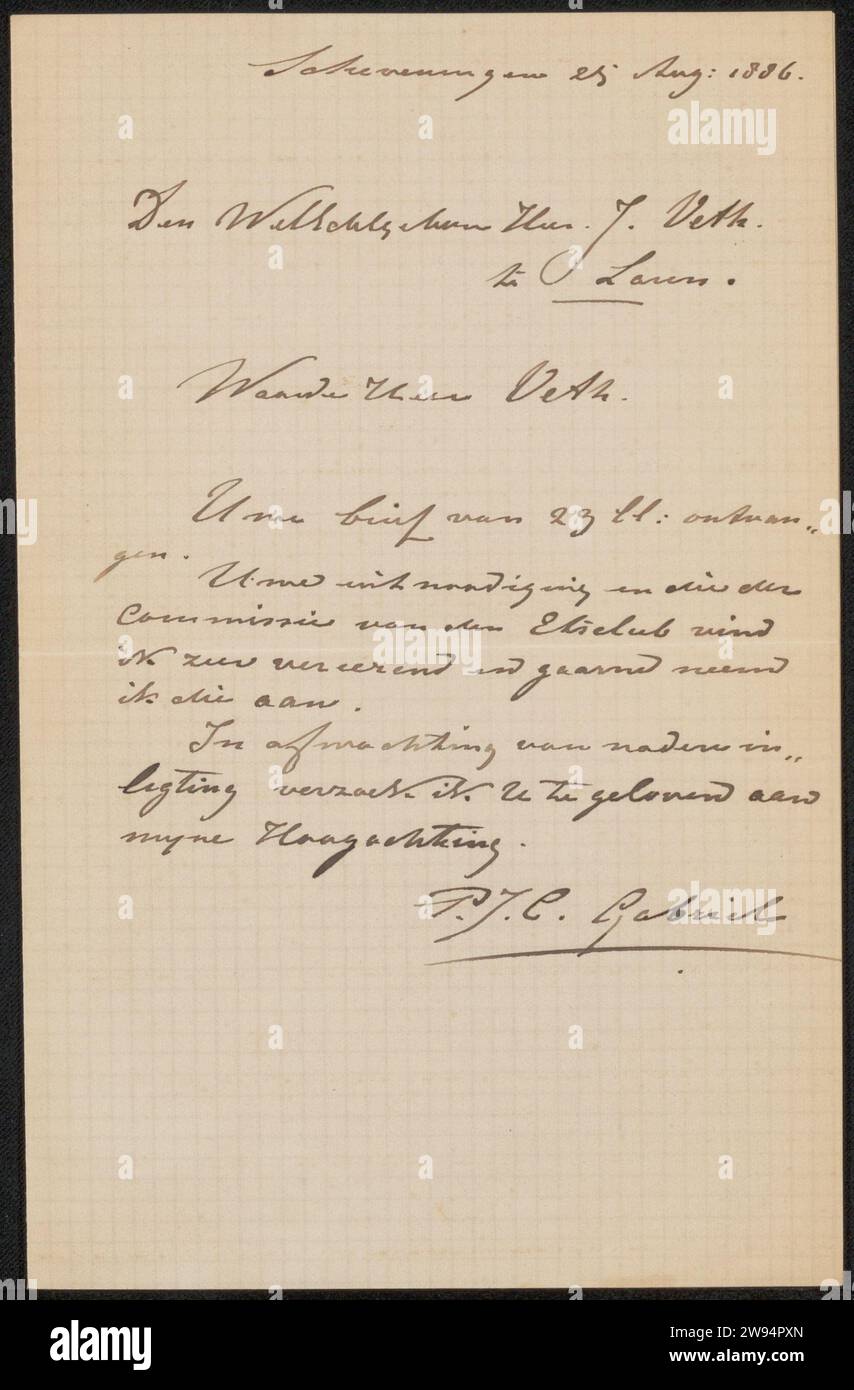 Scheveningen 25 Aug: 1886.
Den WelEdelgeboren Heer. J. Veth.
te Laren.
Waarde Heer Veth.
Uwe brief van 23 ll: ontvan„
gen.
Uwe uitnoodiging en die der
Commissie van den Etsclub vind
ik zeer vereerend en gaarne neem
ik die aan.
In afwachting van nadere in„
ligting verzoek ik U te geloven aan
mijne Hoogachting.
P.J.C. Gabriel
alamy
Image ID: 2W94PXN
www.alamy.com